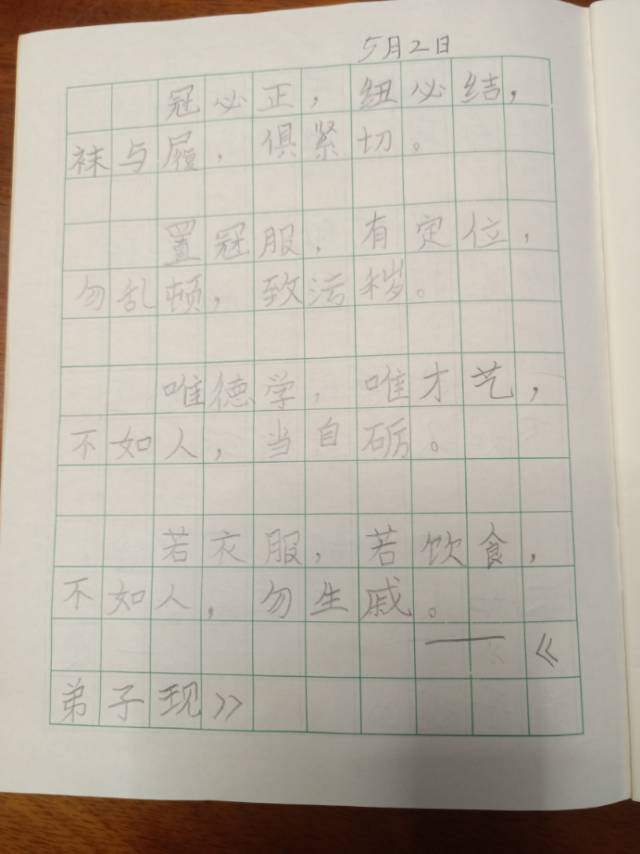 5月2日
冠必正，纽必结，
袜与履，俱紧切。
置冠服，有定位，
勿乱顿，致污秽。
唯德学，唯才艺，
不如人，当自砺。
若衣服，若饮食，
不如人，勿生戚。
——《
弟子现》